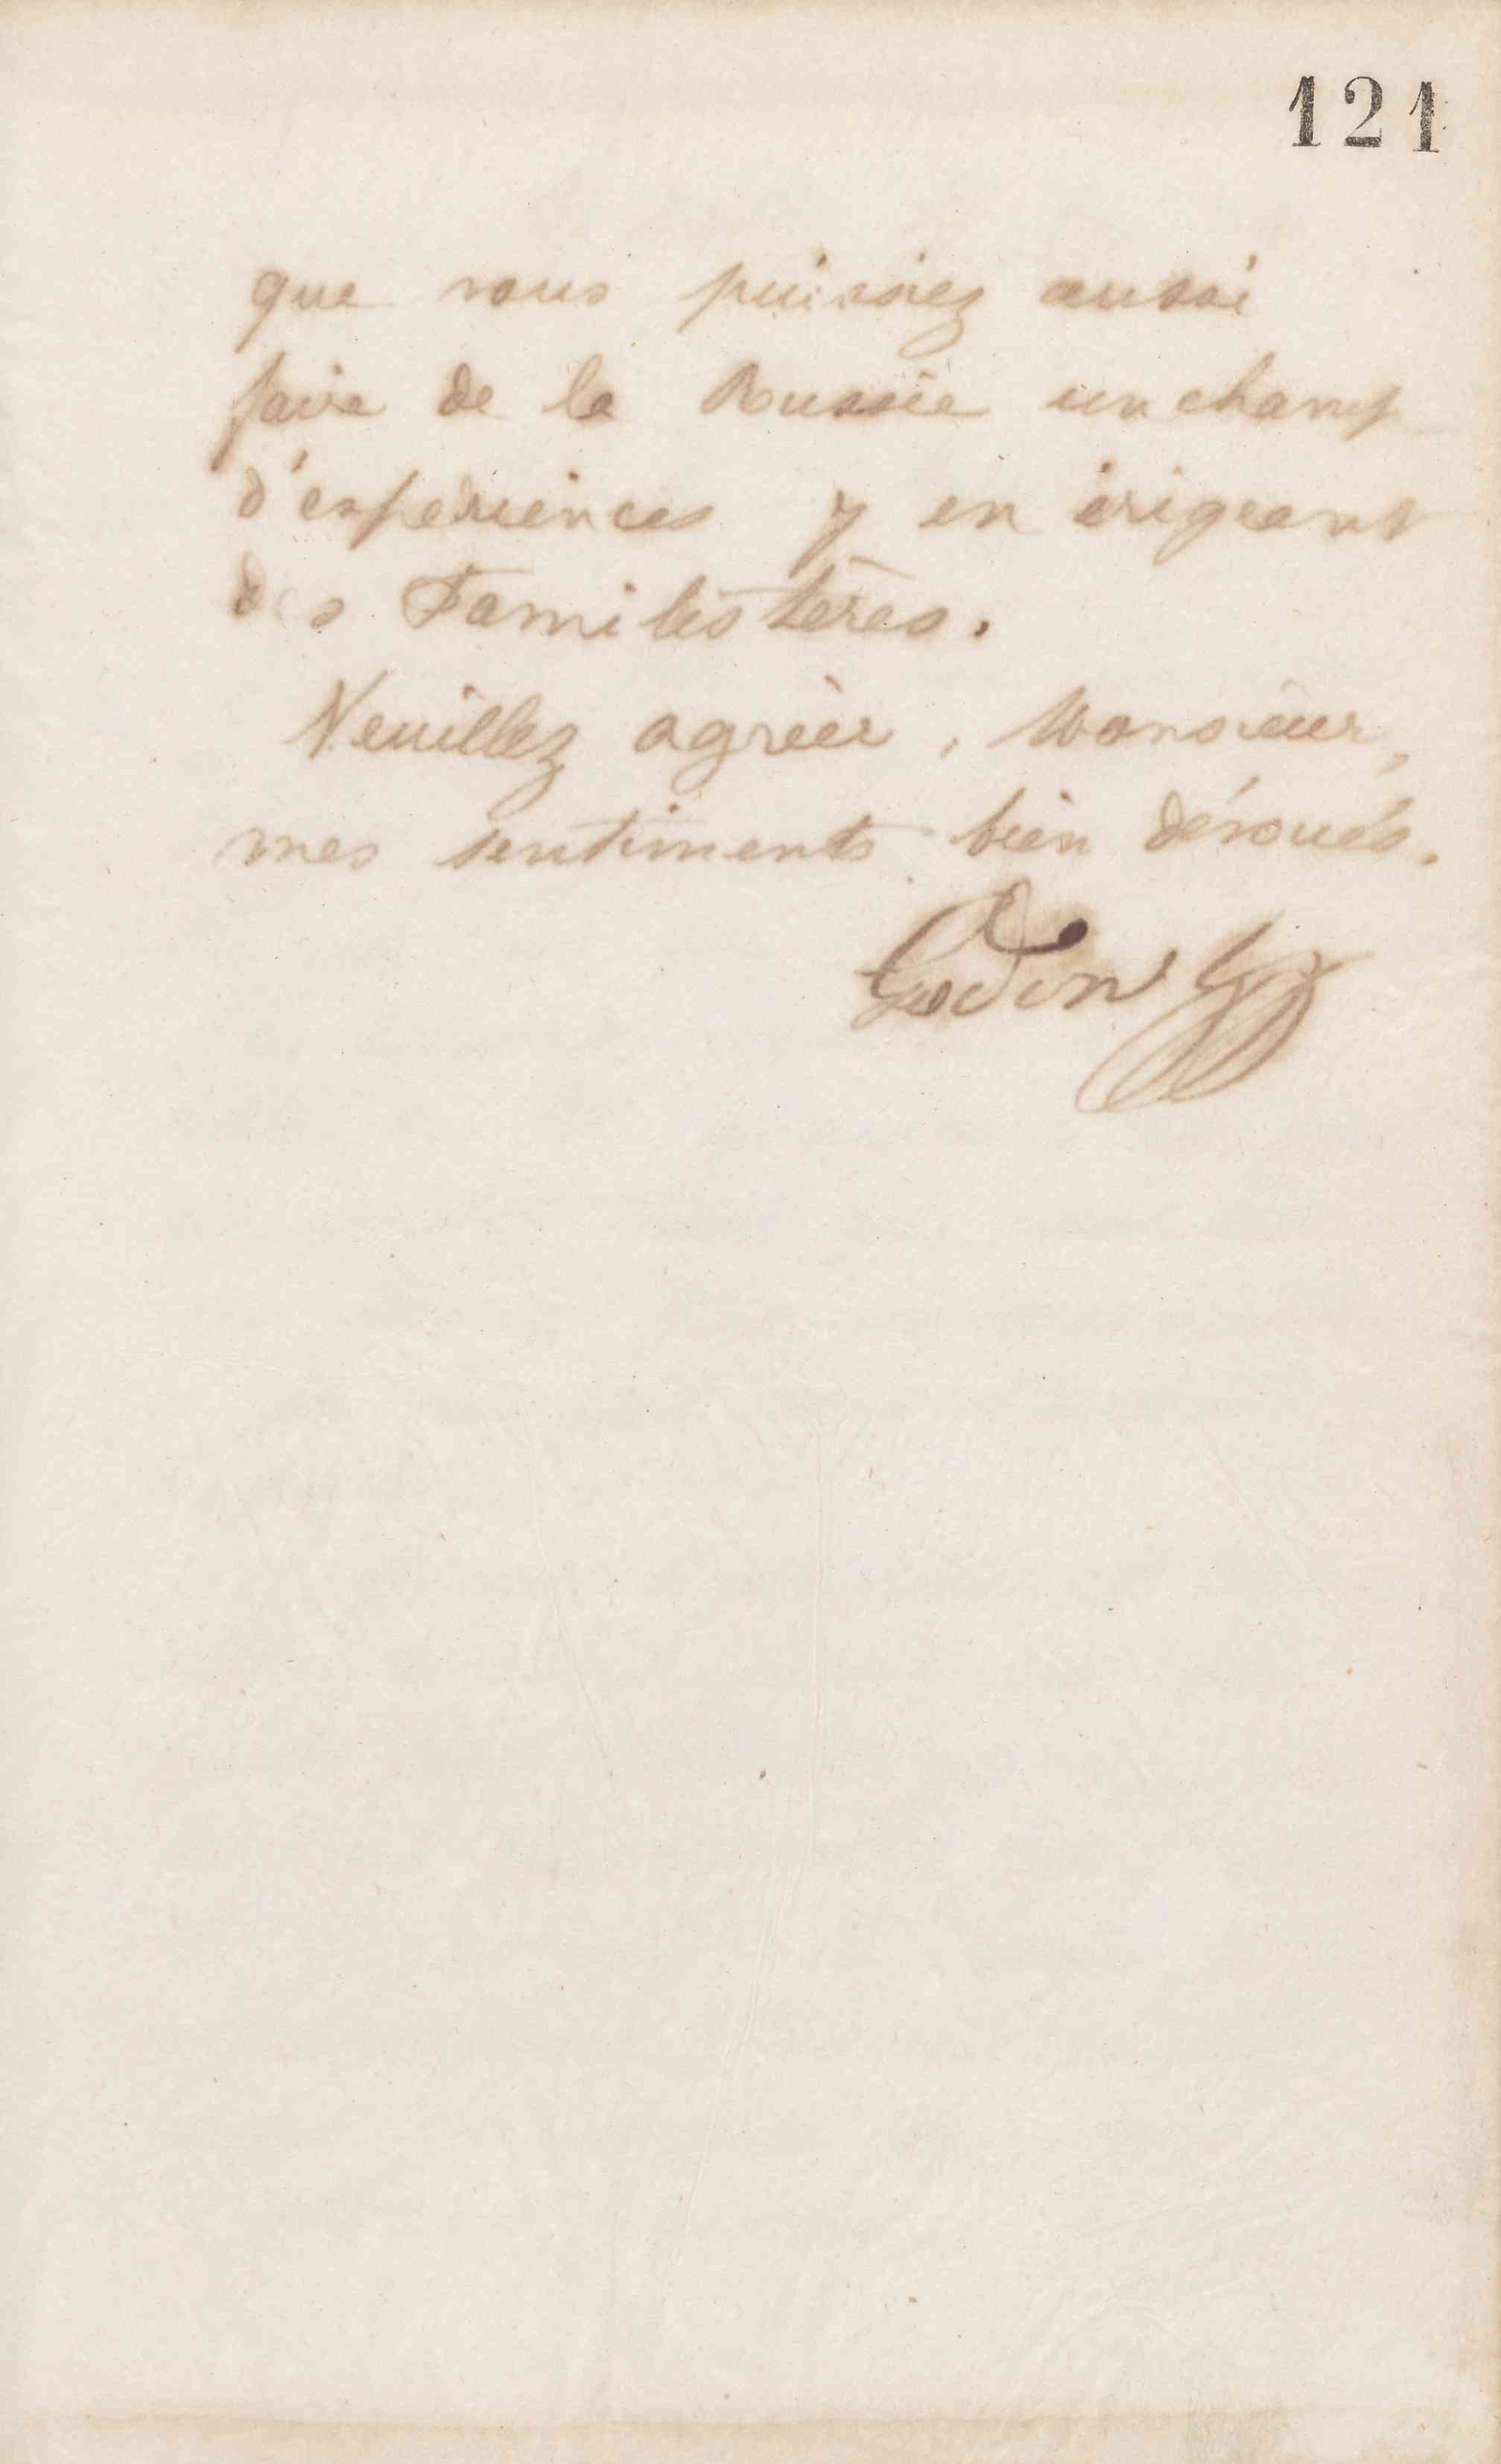 121
que vous puissiez aussi
faire de la Russie un champ
d'expériences y en érigeant
des Familistères.
Veuillez agréer, Monsieur,
mes sentiments bien dévoués.
Godin